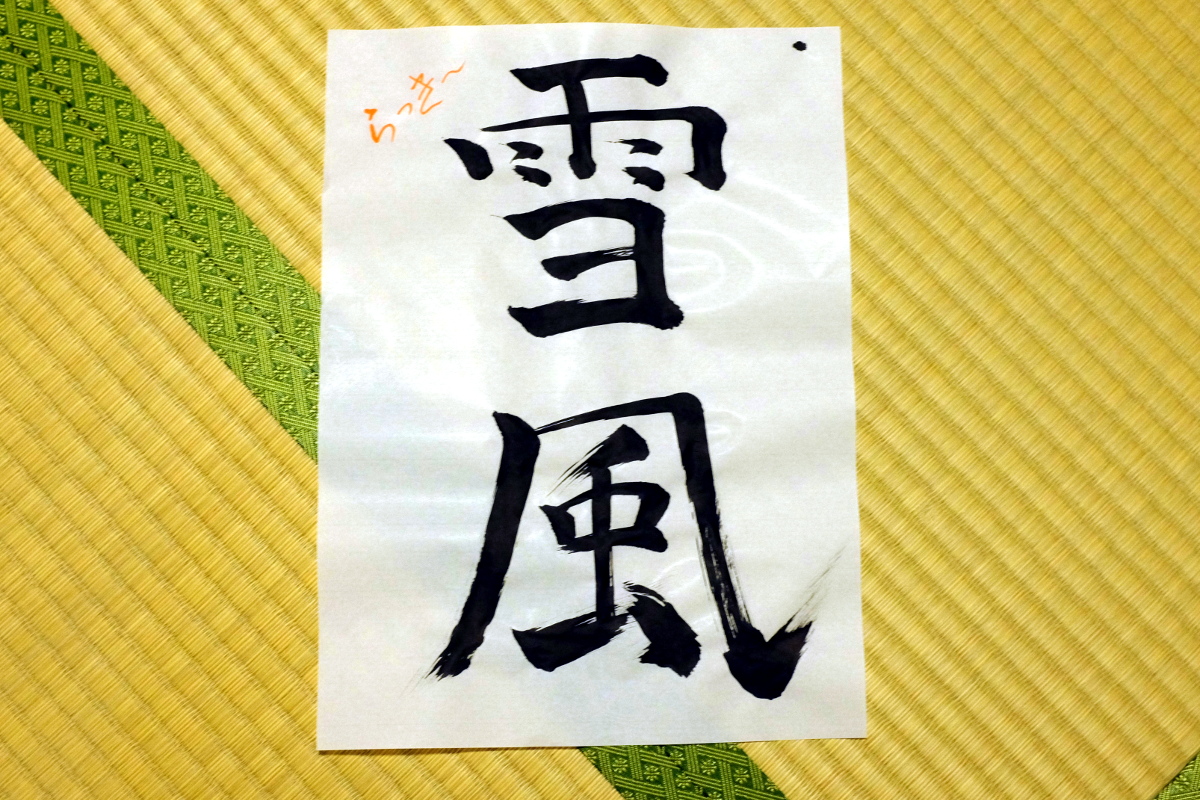 雪風
らっき~